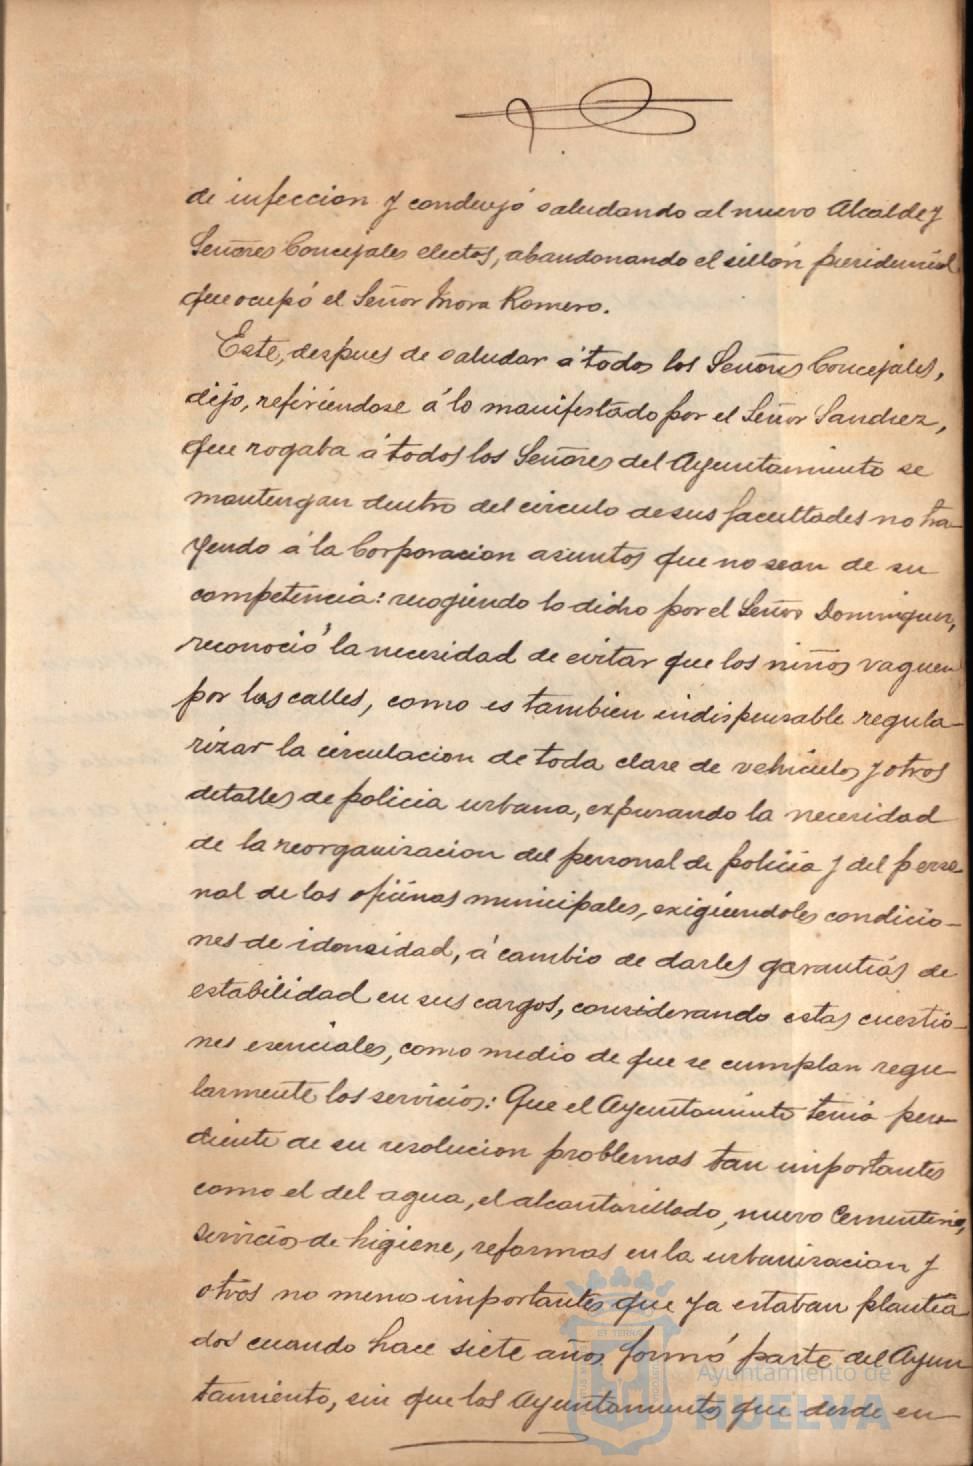 de infeccion y concluyó saludando al nuevo Alcalde y
Señores Concejales electos, abandonando el sillón presidencial
que ocupó el Señor Mora Romero.
Este, despues de saludar á todos los Señores Concejales,
dijo, refiriendose á lo manifestado por el Señor Sanchez,
que rogaba á todos los Señores del Ayuntamiento se
mantengan dentro del circulo de sus facultades no tra-
yendo á la Corporacion asuntos que no sean de su
competencia: recogiendo lo dicho por el Señor Dominguez,
reconoció la necesidad de evitar que los niños vaguen
por las calles, como es tambien indispensable regula-
rizar la circulacion de toda clase de vehiculos y otros
detalles de policia urbana, expresando la necesidad
de la reorganizacion del personal de policia y del perso-
nal de las oficinas municipales, exigiendoles condicio-
nes de idoneidad, á cambio de darles garantias de
estabilidad en sus cargos, considerando estas cuestio-
nes esenciales, como medio de que se cumplan regu-
larmente los servicios: Que el Ayuntamiento tenia pen-
diente de su resolucion problemas tan importantes
como el del agua, el alcantarillado, nuevo Cementerio,
servicios de higiene, reformas en la urbanizacion y
otros no menos importantes que ya estaban plantea
dos cuando hace siete años formó parte del Ayun
tamiento, sin que los Ayuntamientos que desde en-
Ayuntamiento de
HUELVA